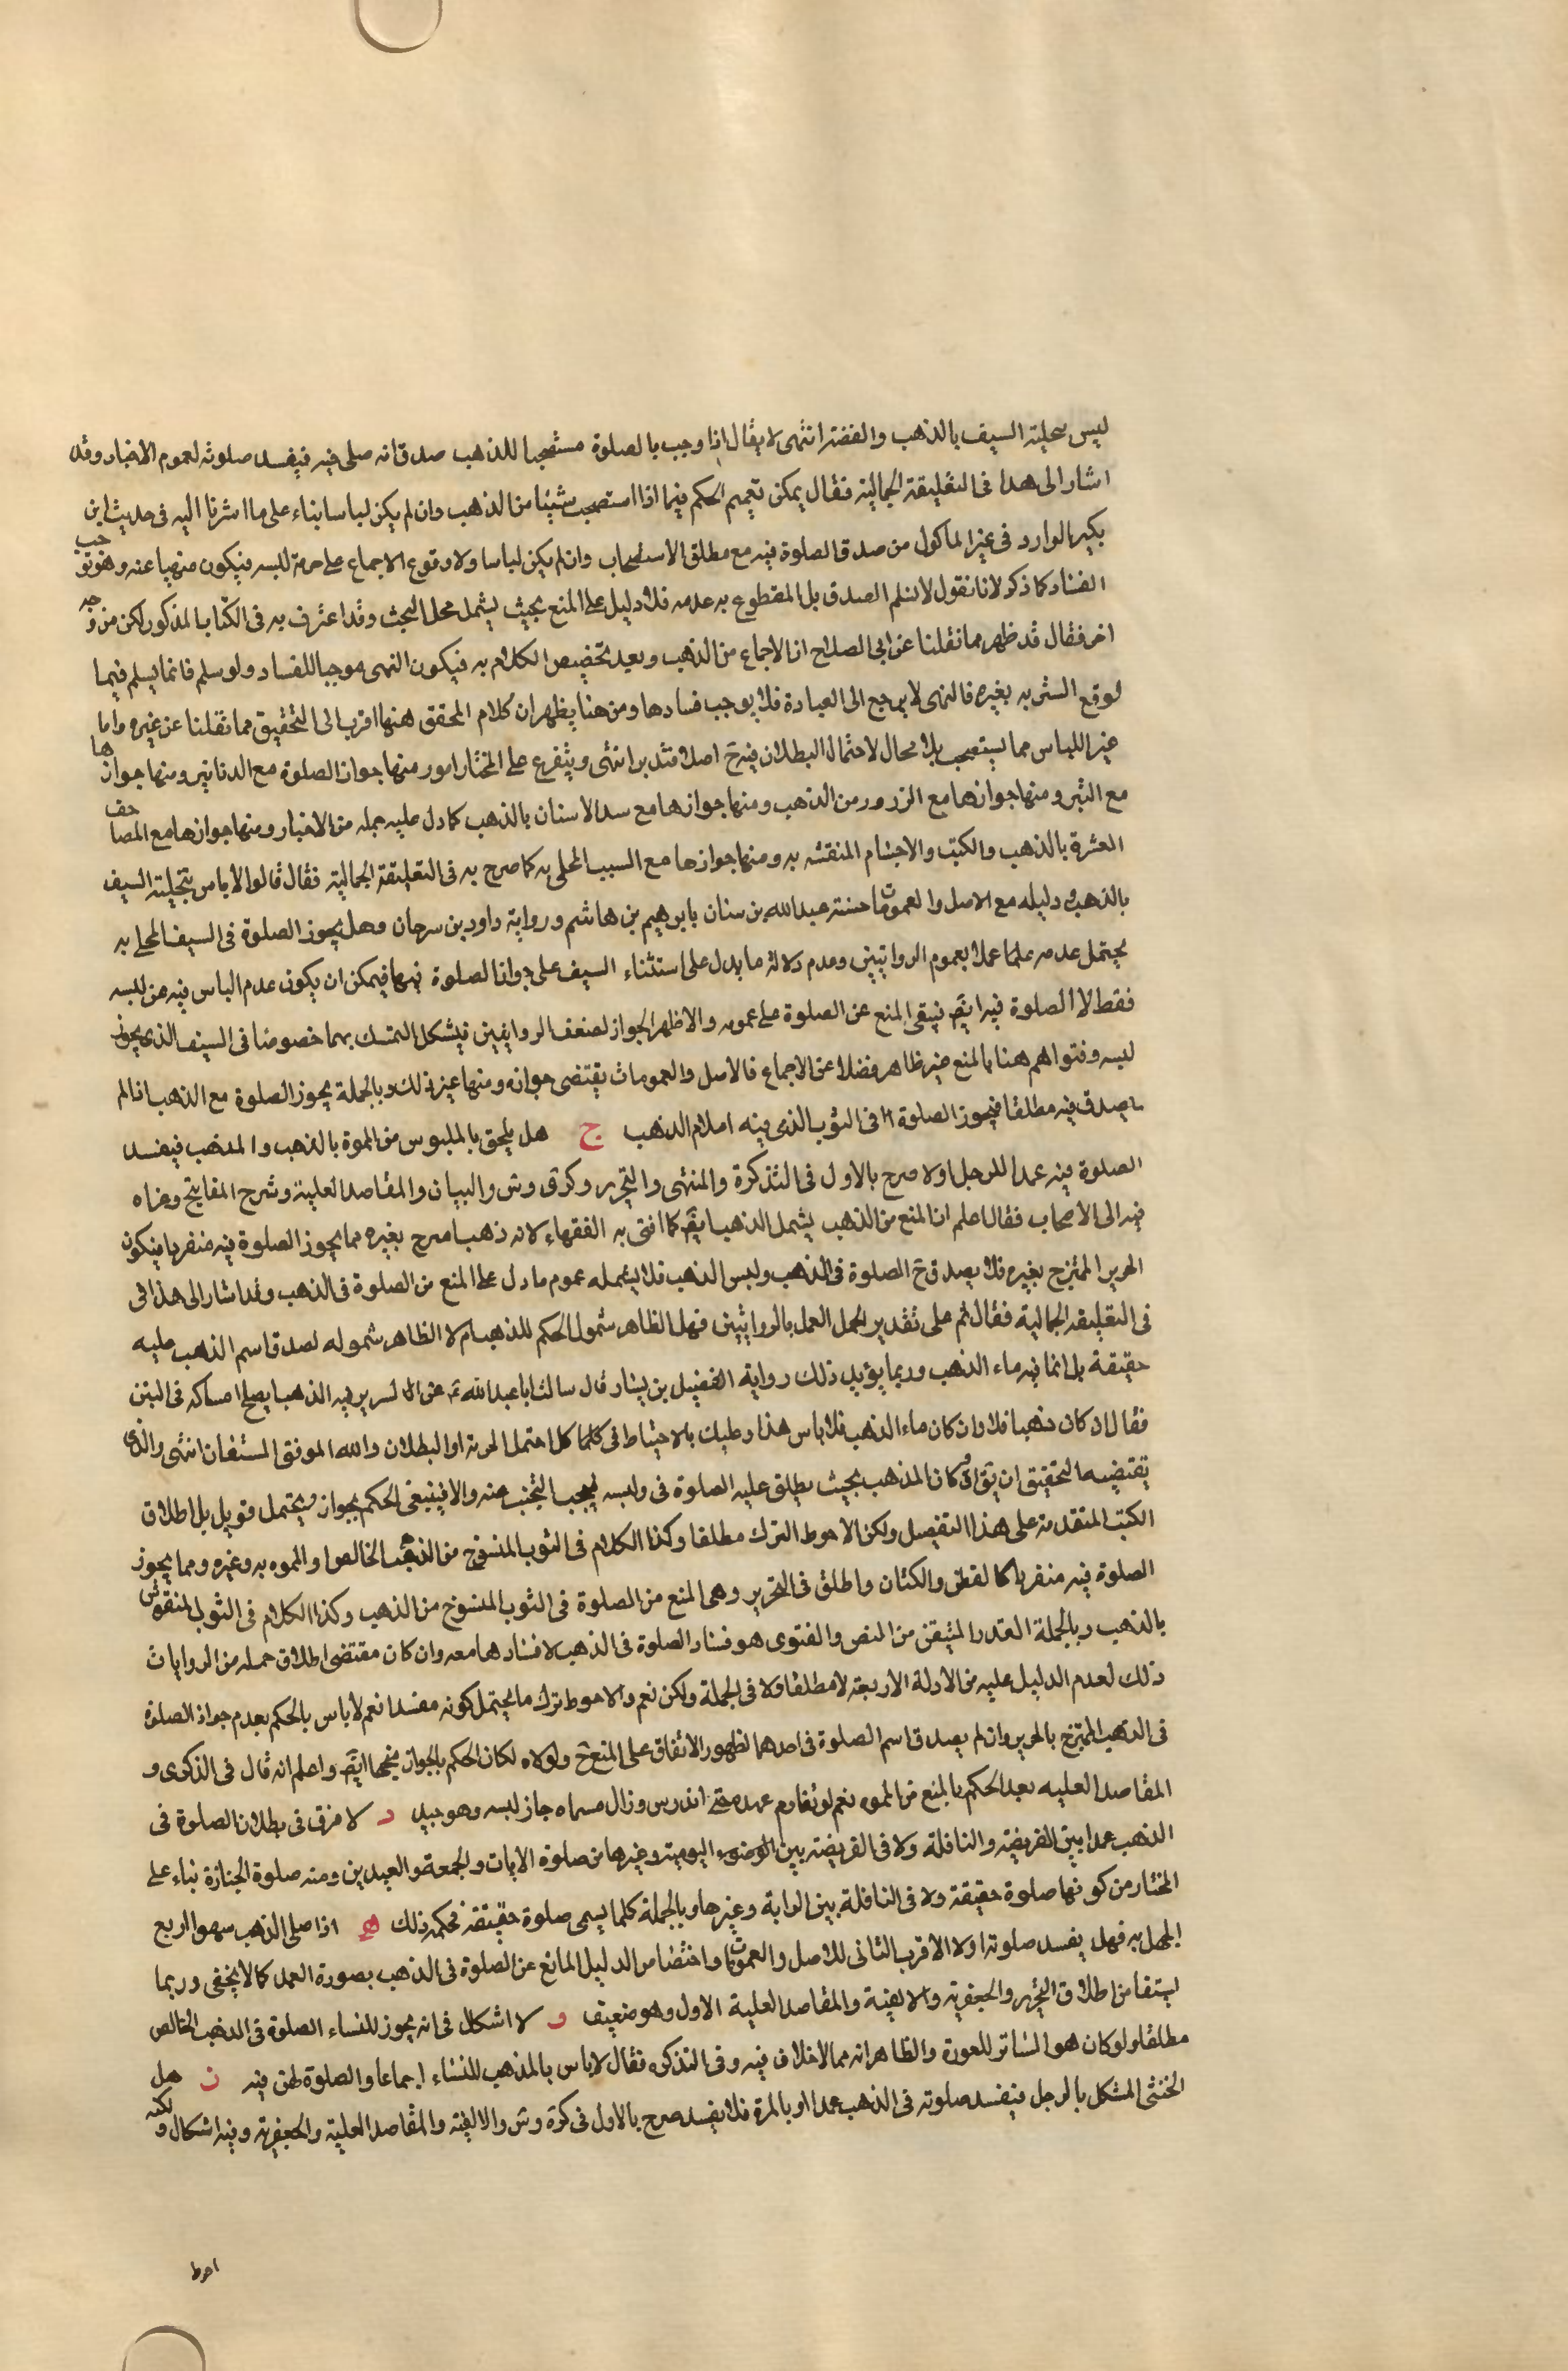 ليس بحلية السيف بالذهب والفضة انتهى لا يقال اذا وجب بالصلوة مستصحبا للذهب صدق انه صلى فيه فيفسد صلوته لعموم الاخبار وقد
اشار الى هذا فى التعليقة الجمالية فقال يمكن تعميم الحكم فيما اذا استصحب شيئا من الذهب وان لم يكن لباسا بناء على ما اشرنا اليه فى حديث ابن
بكير الوارد فى غير المأكول من صدق الصلوة فيه مع مطلق الاستصحاب وان لم يكن لباسا ولا وقوع الاجماع على حرمة للبسه فيكون منهيا عنه وهو توجب
الفساد كما ذكر لانا نقول لا نسلم الصدق بل المقطوع به عدمه فلا دليل على المنع بحيث يشمل محل البحث وقد اعترف به فى الكتاب المذكور لكن من وجه
اخر فقال قد ظهر مما نقلنا عن ابى الصلاح ان الاجماع من الذهب وبعيد تخصيص الكلام به فيكون النهى موجبا للفساد ولو سلم فانما يسلم فيما
لو وقع الستر به بغيره فالنهى لا يرجع الى العبادة فلا يوجب فسادها ومن هنا يظهر ان كلام المحقق هنها اقرب الى التحقيق مما نقلنا عن غيره واما
غير اللباس مما يستصحب بلا مجال لاحتمال البطلان فيه ح اصلا فتدبر انتهى ويتفرع على المختار امور منها جواز الصلوة مع الدنانير ومنها جوازها
مع التبر ومنها جوازها مع الزرور من الذهب ومنها جوازها مع سد الاسنان بالذهب كما دل عليه جملة من الاخبار ومنها جوازها مع المصاحف
المعشرة بالذهب والكتب والاجسام المنقشه به ومنها جوازها مع السيف المحلى به كما صرح به فى التعليقة الجمالية فقال قالوا لا باس بتحلية السيف
بالذهب ودليله مع الاصل والعمومات حسنة عبد الله بن سنان بابرهيم بن هاشم ورواية داود بن سرحان وهل يجوز الصلوة فى السيف المحلى به
يحتمل عدمه علما عملا بعموم الروايتين وعدم دلالة ما يدل على استثناء السيف على جواز الصلوة فيها فيمكن ان يكون عدم الباس فيه من للبسه
فقط لا الصلوة فيه ايضا فيبقى المنع عن الصلوة على عمومه والاظهر الجواز لضعف الروايتين فيشكل التمسك بهما خصوصا فى السيف الذى يجوز
لبسه وفتواهم هنا بالمنع غير ظاهر فضلا عن الاجماع فالاصل والعمومات يقتضى جوازه ومنها غير ذلك وبالجملة يجوز الصلوة مع الذهب اذا لم
يصدق فيه مطلقا فيجوز الصلوة فى الثوب الذى فيه اعلام الذهب ج هل يلحق بالملبوس من المموة بالذهب والمذهب فيفسد
الصلوة فيه عمدا للرجل اولا صرح بالاول فى التذكرة والمنتهى والتحرير وكرى وس والبيان والمقاصد العلية وشرح المفاتيح وعزاه
فيه الى الاصحاب فقال اعلم ان المنع من الذهب يشمل المذهب ايضا كما افتى به الفقهاء لانه ذهب امزج بغيره مما يجوز الصلوة فيه منفردا فيكون
الحرير الممتزج بغيره فلا يصدق ح الصلوة فى الذهب وليس الذهب فلا يشمله عموم ما دل على المنع من الصلوة فى الذهب وقد اشار الى هذا فى
فى التعليقة الجمالية فقال ثم على تقدير العمل بالروايتين فهل الظاهر شمول الحكم للمذهب ام لا الظاهر شموله لصدق اسم الذهب عليه
حقيقة بل انما فيه ماء الذهب وربما يؤيد ذلك رواية الفضيل بن يسار قال سالت ابا عبد الله ع عن السرير فيه الذهب ايصلح امساكه فى البيت
فقال ان كان ذهبا فلا وان كان ماء الذهب فلا باس هذا وعليك بالاحتياط فى كلما احتمل الحرمة او البطلان والله الموفق المستعان انتهى والذى
يقتضيه التحقيق ان يق ان كان المذهب بحيث يطلق عليه الصلوة فى ولبسه فيجب التجنب عنه والا فينبغى الحكم بجواز ويحتمل قويا بل اطلاق
الكتب المتقدمة على هذا التفصيل ولكن الاحوط الترك مطلقا وكذا الكلام فى الثوب المنسوج من الذهب الخالص او المموه به وغيره ومما يجوز
الصلوة فيه منفردا كالقطن والكتان واطلق فى التحرير وهى المنع من الصلوة فى الثوب المنسوج من الذهب وكذا الكلام فى الثوب المنقوش
بالذهب وبالجملة القدر المتيقن من النص والفتوى هو فساد الصلوة فى الذهب لا فسادها معه وان كان مقتضى اطلاق جملة من الروايات
ذلك لعدم الدليل عليه من الادلة الاربعة لا مطلقا ولا فى الجملة ولكن نعم والاحوط ترك ما يحتمل كونه مفسدا نعم لا باس بالحكم بعدم جواز الصلوة
فى الذهب الممتزج بالحرير وان لم يصدق اسم الصلوة فى احدهما لظهور الاتفاق على المنع ح ولولاه لكان الحكم بالجواز متجها ايضا واعلم انه قال فى الذكرى و
المقاصد العليه بعد الحكم بالمنع من المموه نعم لو تقادم عهده حتى اندرس وزال مسماه جاز لبسه وهو جيد د لا فرق فى بطلان الصلوة فى
الذهب عمدا بين الفريضة والنافلة ولا فى الفريضة بين اليومية وغيرها من صلوة الايات والجمعة والعيدين ومنه صلوة الجنازة بناء على
المختار من كونها صلوة حقيقة ولا فى النافلة بين الراتبة وغيرها وبالجملة كلما يسمى صلوة حقيقة فحكمه ذلك ه اذا صلى الذهب سهوا او مع
الجهل به فهل يفسد صلوته اولا الاقرب الثانى للاصل والعمومات واختصاص الدليل المانع عن الصلوة فى الذهب بصورة العمد كما لا يخفى وربما
يستفاد من اطلاق التحرير والجعفرية والالفية والمقاصد العلية الاول وهو ضعيف و لا اشكال فى انه يجوز للنساء الصلوة فى الذهب الخالص
مطلقا ولو كان هو الساتر للعورة والظاهر انه مما لا خلاف فيه وفى التذكره فقال لا باس بالمذهب للنساء اجماعا والصلوة لهن فيه ز هل
الخنثى المشكل بالرجل فيفسد صلوته فى الذهب عمدا او بالمرة فلا يفسد صرح بالاول فى كرة وس والالفية والمقاصد العلية والجعفرية وفيه اشكال ولكنه
احوط